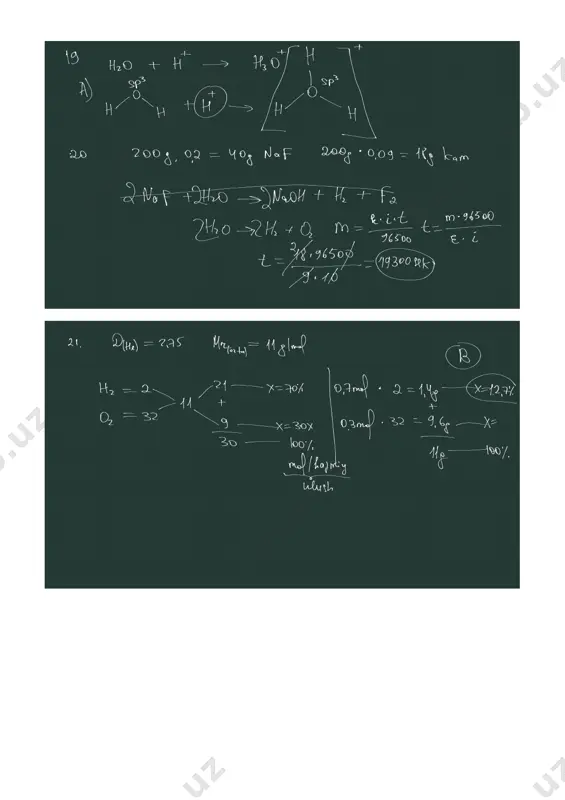 19 H₂O + H⁺ → H₃O⁺
A) sp³
H O H + H⁺ → [ H O H H sp³ ]⁺
20 200g · 0,2 = 40g NaF 200g · 0,09 = 18g kam
2NaF + 2H₂O → 2NaOH + H₂ + F₂
2H₂O → 2H₂ + O₂ m = E · i · t / 96500 t = m · 96500 / E · i
t = 18 · 96500 / 9 · 10 = 19300 sek
21. D(He) = 2,75 = 11 g/mol
B
H₂ = 2 21 — x = 70% 0,7mol · 2 = 1,4g — x = 12,7%
11 + +
O₂ = 32 9 — x = 30% 0,3mol · 32 = 9,6g — x =
30 — 100% 11g — 100%
mol/hajmiy
ulush
uz
.uz
uz
uz